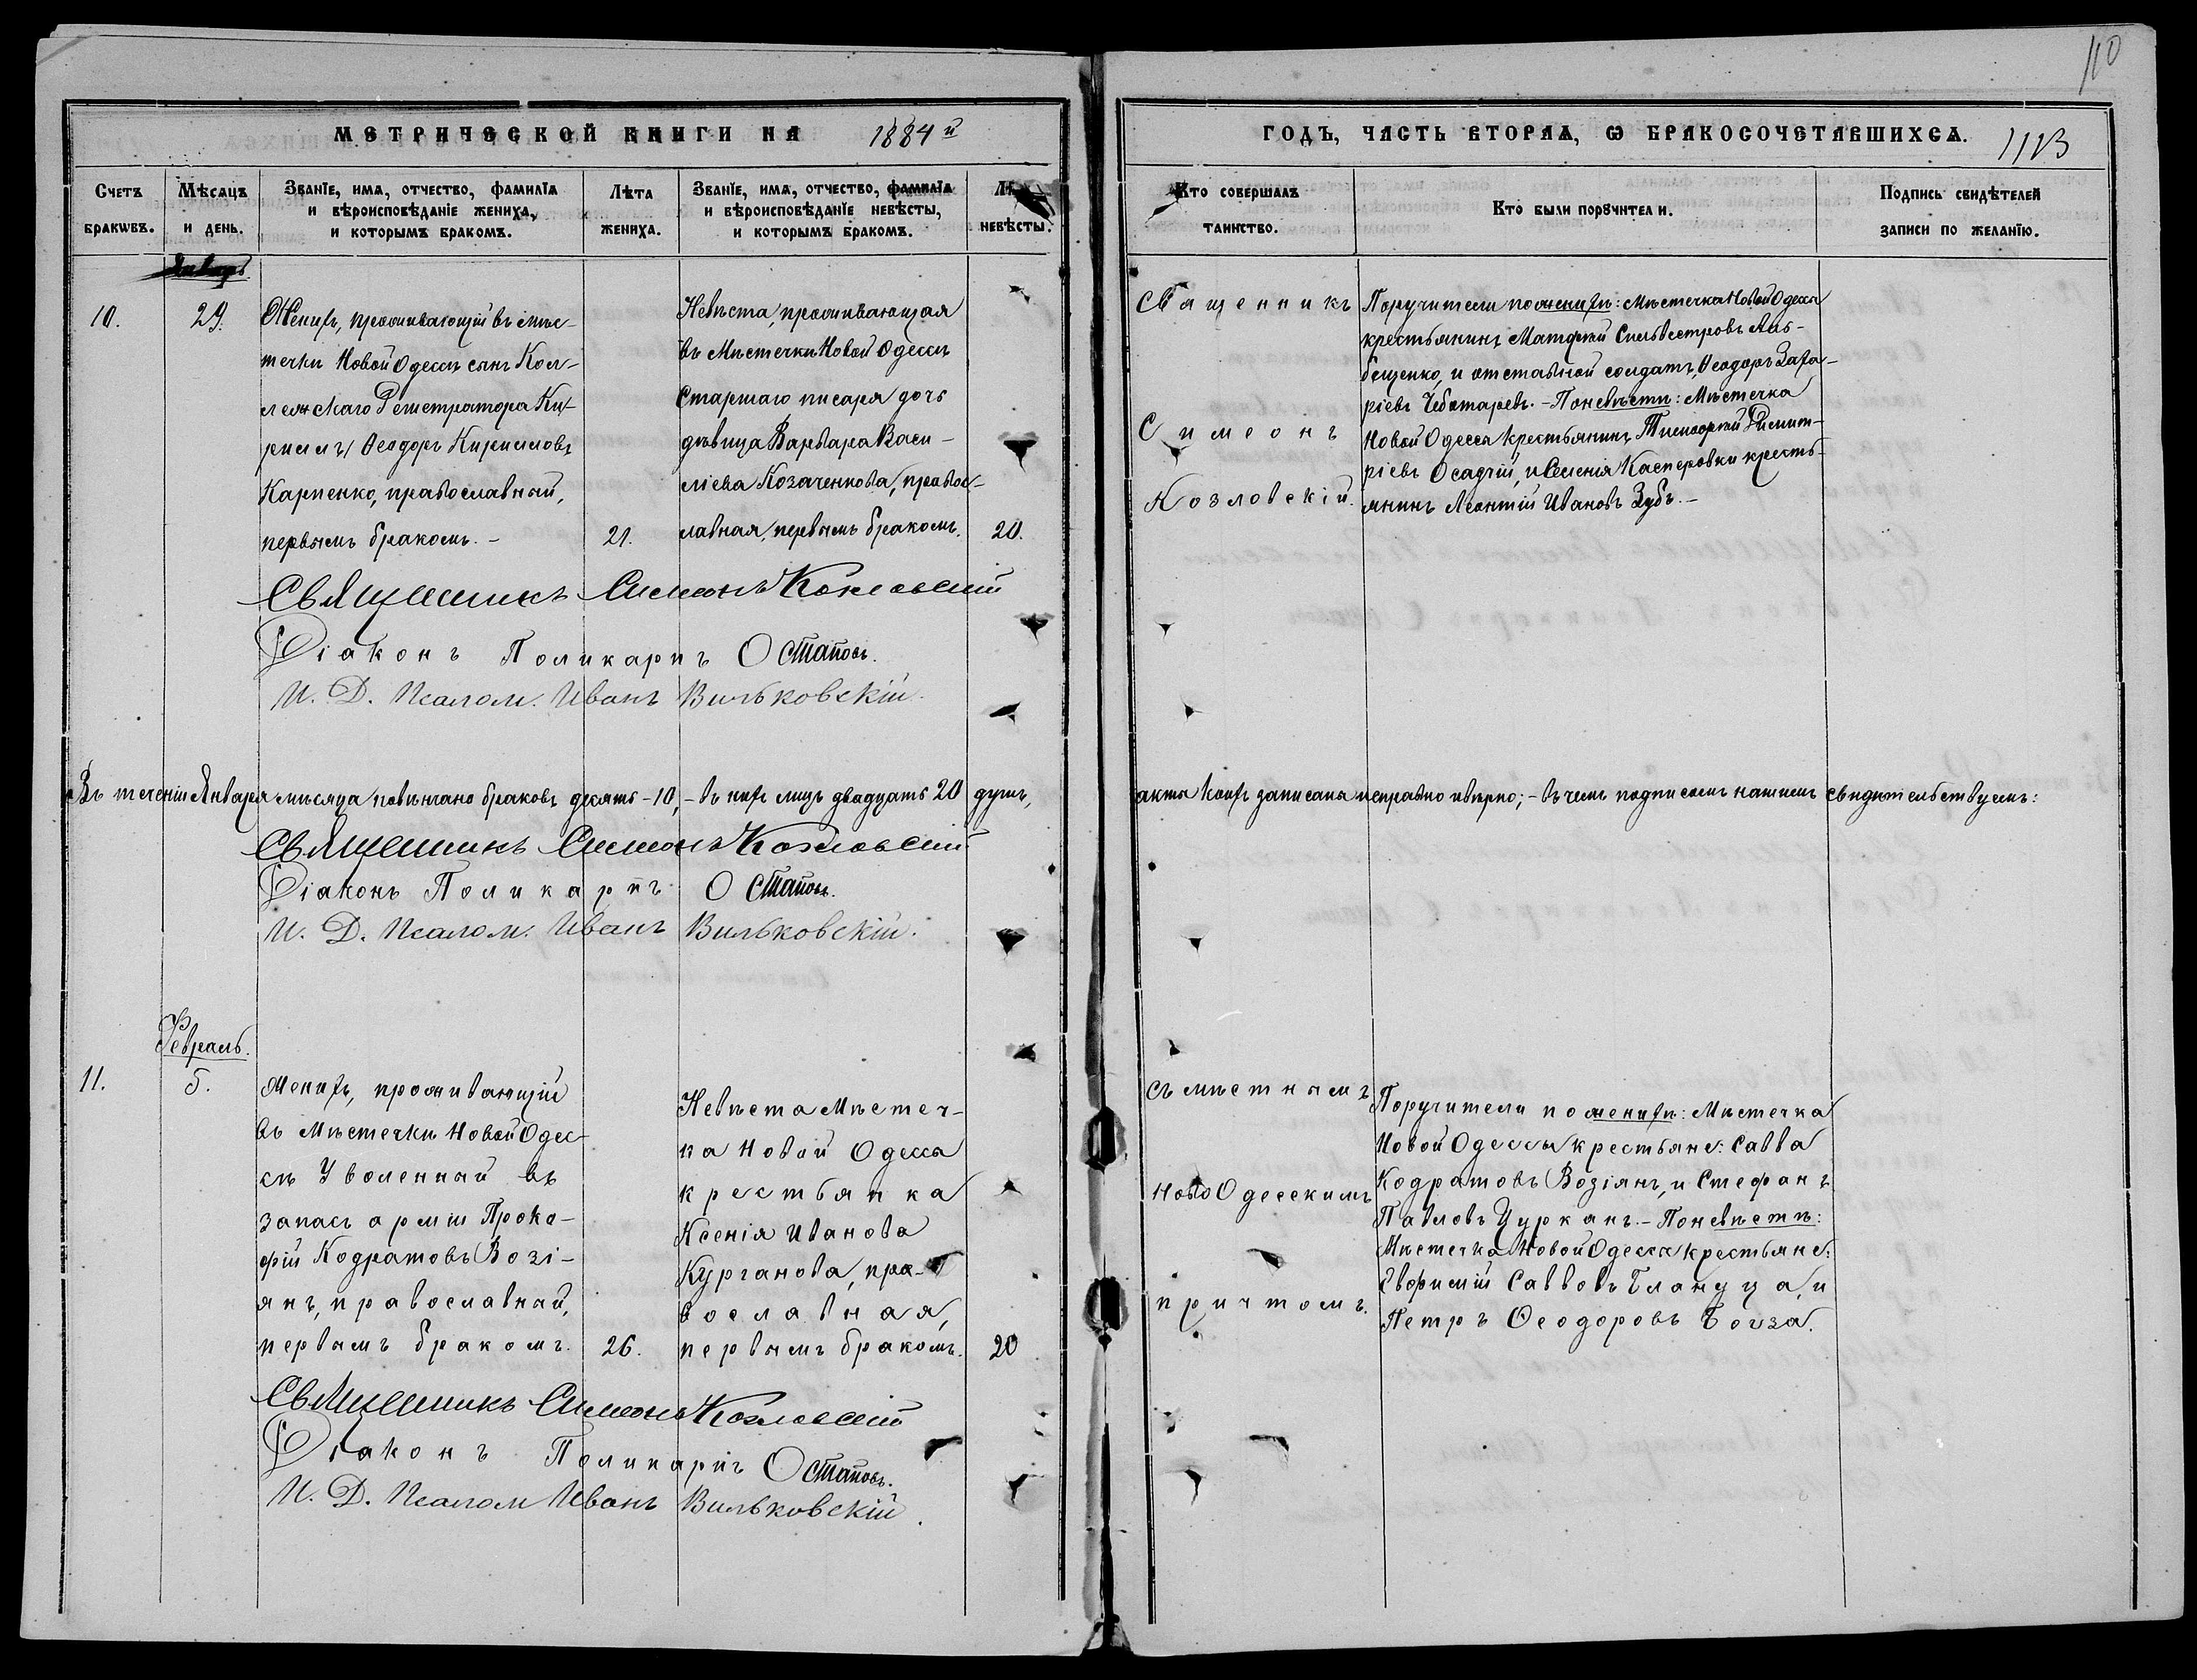 110
МЕТРИЧЕСКОЙ КНИГИ НА 1884й
ГОДЪ, ЧАСТЬ ВТОРАѦ, Ѡ БРАКОСОЧЕТАВШИХСѦ.
Счетъ
браковъ.
Мѣсѧцъ
и день.
Званїе, имѧ, отчество, фамилїѧ
и вѣроисповѣданіе жениха,
и которымъ бракомъ.
Лѣта
жениха.
Званїе, имѧ, отчество, фамилїѧ
и вѣроисповѣданїе невѣсты,
и которымъ бракомъ.
невѣсты.
Кто совершалъ
таинство.
Кто были поручители.
Подпись свидѣтелей
записи по желанїю.
Январь
10.
29.
Женихъ, проживающій въ Мѣс-
течкѣ Новой Одессѣ сынъ Кол-
лежскаго Регистратора Ки-
риллъ Ѳеодоръ Кирилловъ
Карпенко, православный,
первымъ бракомъ. -
21.
Невѣста, проживающая
въ Мѣстечкѣ Новой Одессѣ
Старшаго писаря дочь
дѣвица Варвара Васи-
ліева Козаченкова, правос-
лавная, первымъ бракомъ.
20.
Священникъ
Симеонъ
Козловскій.
Поручители по женихѣ: Мѣстечка Новой Одессы
крестьянинъ Матфей Сильвестровъ Ляс-
бещенко, и отставной солдатъ Ѳеодоръ Заха-
ріевъ Чеботаревъ. - По невѣстѣ: Мѣстечка
Новой Одессы крестьянинъ Тимофей Димит-
ріевъ Осадчій, и Селенія Касперовки кресть-
янинъ Леонтій Ивановъ Зубъ. -
Священникъ Симеонъ Козловскій
Діаконъ Поликарпъ Остаповъ.
И. Д. Псалом. Иванъ Вильковскій.
Въ теченіи Января мѣсяца повѣнчано браковъ десять - 10, - въ нихъ лицъ двадцать 20 душъ, акты коихъ записаны исправно и вѣрно; - въ чемъ подписомъ нашимъ свидѣтельствуемъ:
Священникъ Симеонъ Козловскій
Діаконъ Поликарпъ Остаповъ.
И. Д. Псалом. Иванъ Вильковскій.
Февраль.
11.
5.
Женихъ, проживающій
въ Мѣстечкѣ Новой Одес-
сѣ Уволенный въ
запасъ арміи Проко-
фій Кодратовъ Возі-
янъ, православный,
первымъ бракомъ.
26.
Невѣста Мѣстеч-
ка Новой Одессы
крестьянка
Ксенія Иванова
Курганова, пра-
вославная,
первымъ бракомъ.
20
Съ мѣстнымъ
Ново Одесскимъ
причтомъ.
Поручители по женихѣ: Мѣстечка
Новой Одессы крестьяне: Савва
Кодратовъ Возіянъ, и Стефанъ
Павловъ Цурканъ. - По невѣстѣ:
Мѣстечка Новой Одессы крестьяне:
Евфимій Саввовъ Блануца, и
Петръ Ѳеодоровъ Богза.
Священникъ Симеонъ Козловскій
Діаконъ Поликарпъ Остаповъ.
И. Д. Псалом Иванъ Вильковскій.